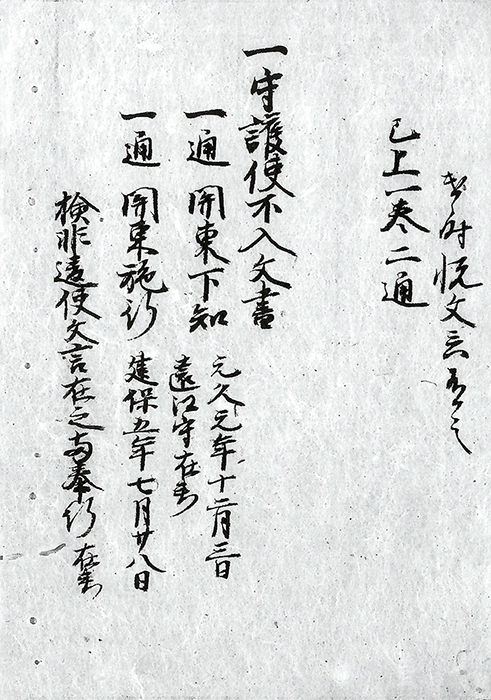 已上一巻二通
一守護使不入文書
一通 関東下知 元久元年十二月三日
遠江守在判
一通 関東施行 建保五年七月廿八日
検非違使文言在之両奉行在判